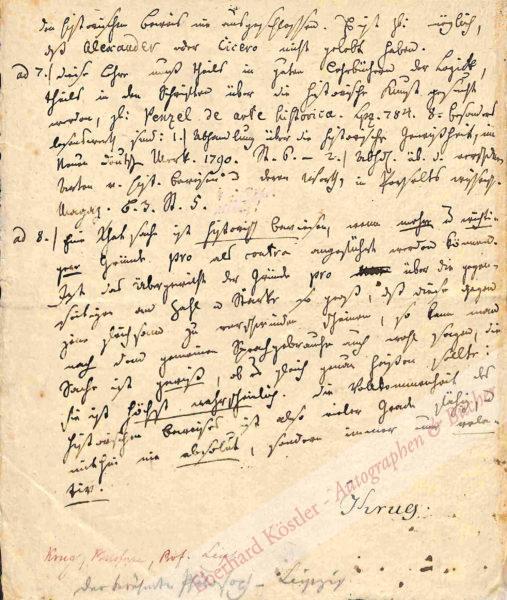 den historischen Beweis nie ausgeschlossen. Es ist z. B. möglich,
daß Alexander oder Cicero nicht gelebt haben.
ad 7.) diese Lehre muß theils in guten Lehrbüchern der Logik,
theils in den Schriften über die historische Kunst gesucht
werden, z. B. Penzel de arte historica. Lpz. 784. 8. besonders
lesenswerth sind: 1.) Abhandlung über die historische Gewißheit, im
Neuen deutsch. Merk. 1790. St. 6. – 2.) Abhdl. üb. d. verschiedn
Arten u. hist. Beweise u deren Werth, in
Magaz. B. 3. St. 5.
ad 8.) Eine Thatsache ist historisch bewiesen, wenn mehr u wichti-
gere Gründe pro als contra angeführt werden können.
Ist das Übergewicht der Gründe pro über die gegen-
seitigen an Zahl u Stärke so groß, daß diese gegen
jene gleichsam zu verschwinden scheinen, so kann man
nach dem gemeinen Sprachgebrauche auch wohl sagen, die
Sache ist gewiß, ob es gleich genau heißen sollte:
sie ist höchst wahrscheinlich. Die Vollkommenheit des
historischen Beweises ist also vieler Grade fähig u
mithin nie absolut, sondern immer nur rela-
tiv.
Krug.
Krug, Prof. Leip
der berühmte Philosoph – Leipzig
Eberhard Köstler - Autographen & Bücher